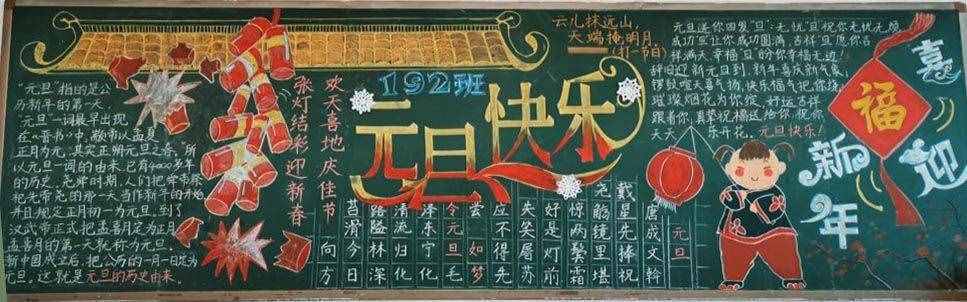 "元旦"指的是公
历新年的第一天.
"元旦"一词最早出现
在《晋书》中,颛帝以孟夏
正月为元,其实正朔元旦之春。所
以元旦一词的由来,已有4000多年
的历史,尧舜时期,人们把舜帝祭
祀先帝尧的那一天当作新年的开始
并且规定正月初一为元旦,到了
汉武帝正式把孟喜月定为正月
孟喜月的第一天就称为元旦。
新中国成立后,把公历的一月一日定为
元旦。这就是元旦的历史由来.
欢天喜地庆佳节
张灯结彩迎新春
192班
元旦快乐
云儿抹远山,
天端掩明月
(打一节日)
元旦
唐成文斡
戴星先捧祝
尧觞镜里堪
惊两鬓霜
好是灯前
失笑屠苏
应不得先
尝如梦
令元旦毛
泽东宁化
清流归化
路隘林深
苔滑今向方
元旦送你四发"旦":无忧"旦"祝你无忧无烦
成功"旦"让你成功圆满,吉祥"旦"愿你吉
祥满天,幸福"旦"的你幸福无边!
辞旧迎新元旦到,新年喜庆新气象,
锣鼓喧天喜气扬,快乐福气把你绕,
璀璨烟花为你绽,好运吉祥
跟着你,真挚祝福送给你,祝你
天天乐开花,元旦快乐!
福
喜迎
新年